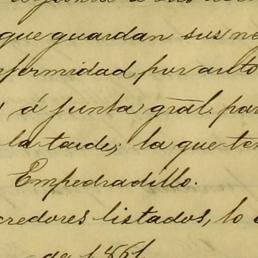 que guardan sus
enfermidad por auto
á junta gral. par
la tarde; la que ten
Empedradillo.
credores listados, lo
de 1861.